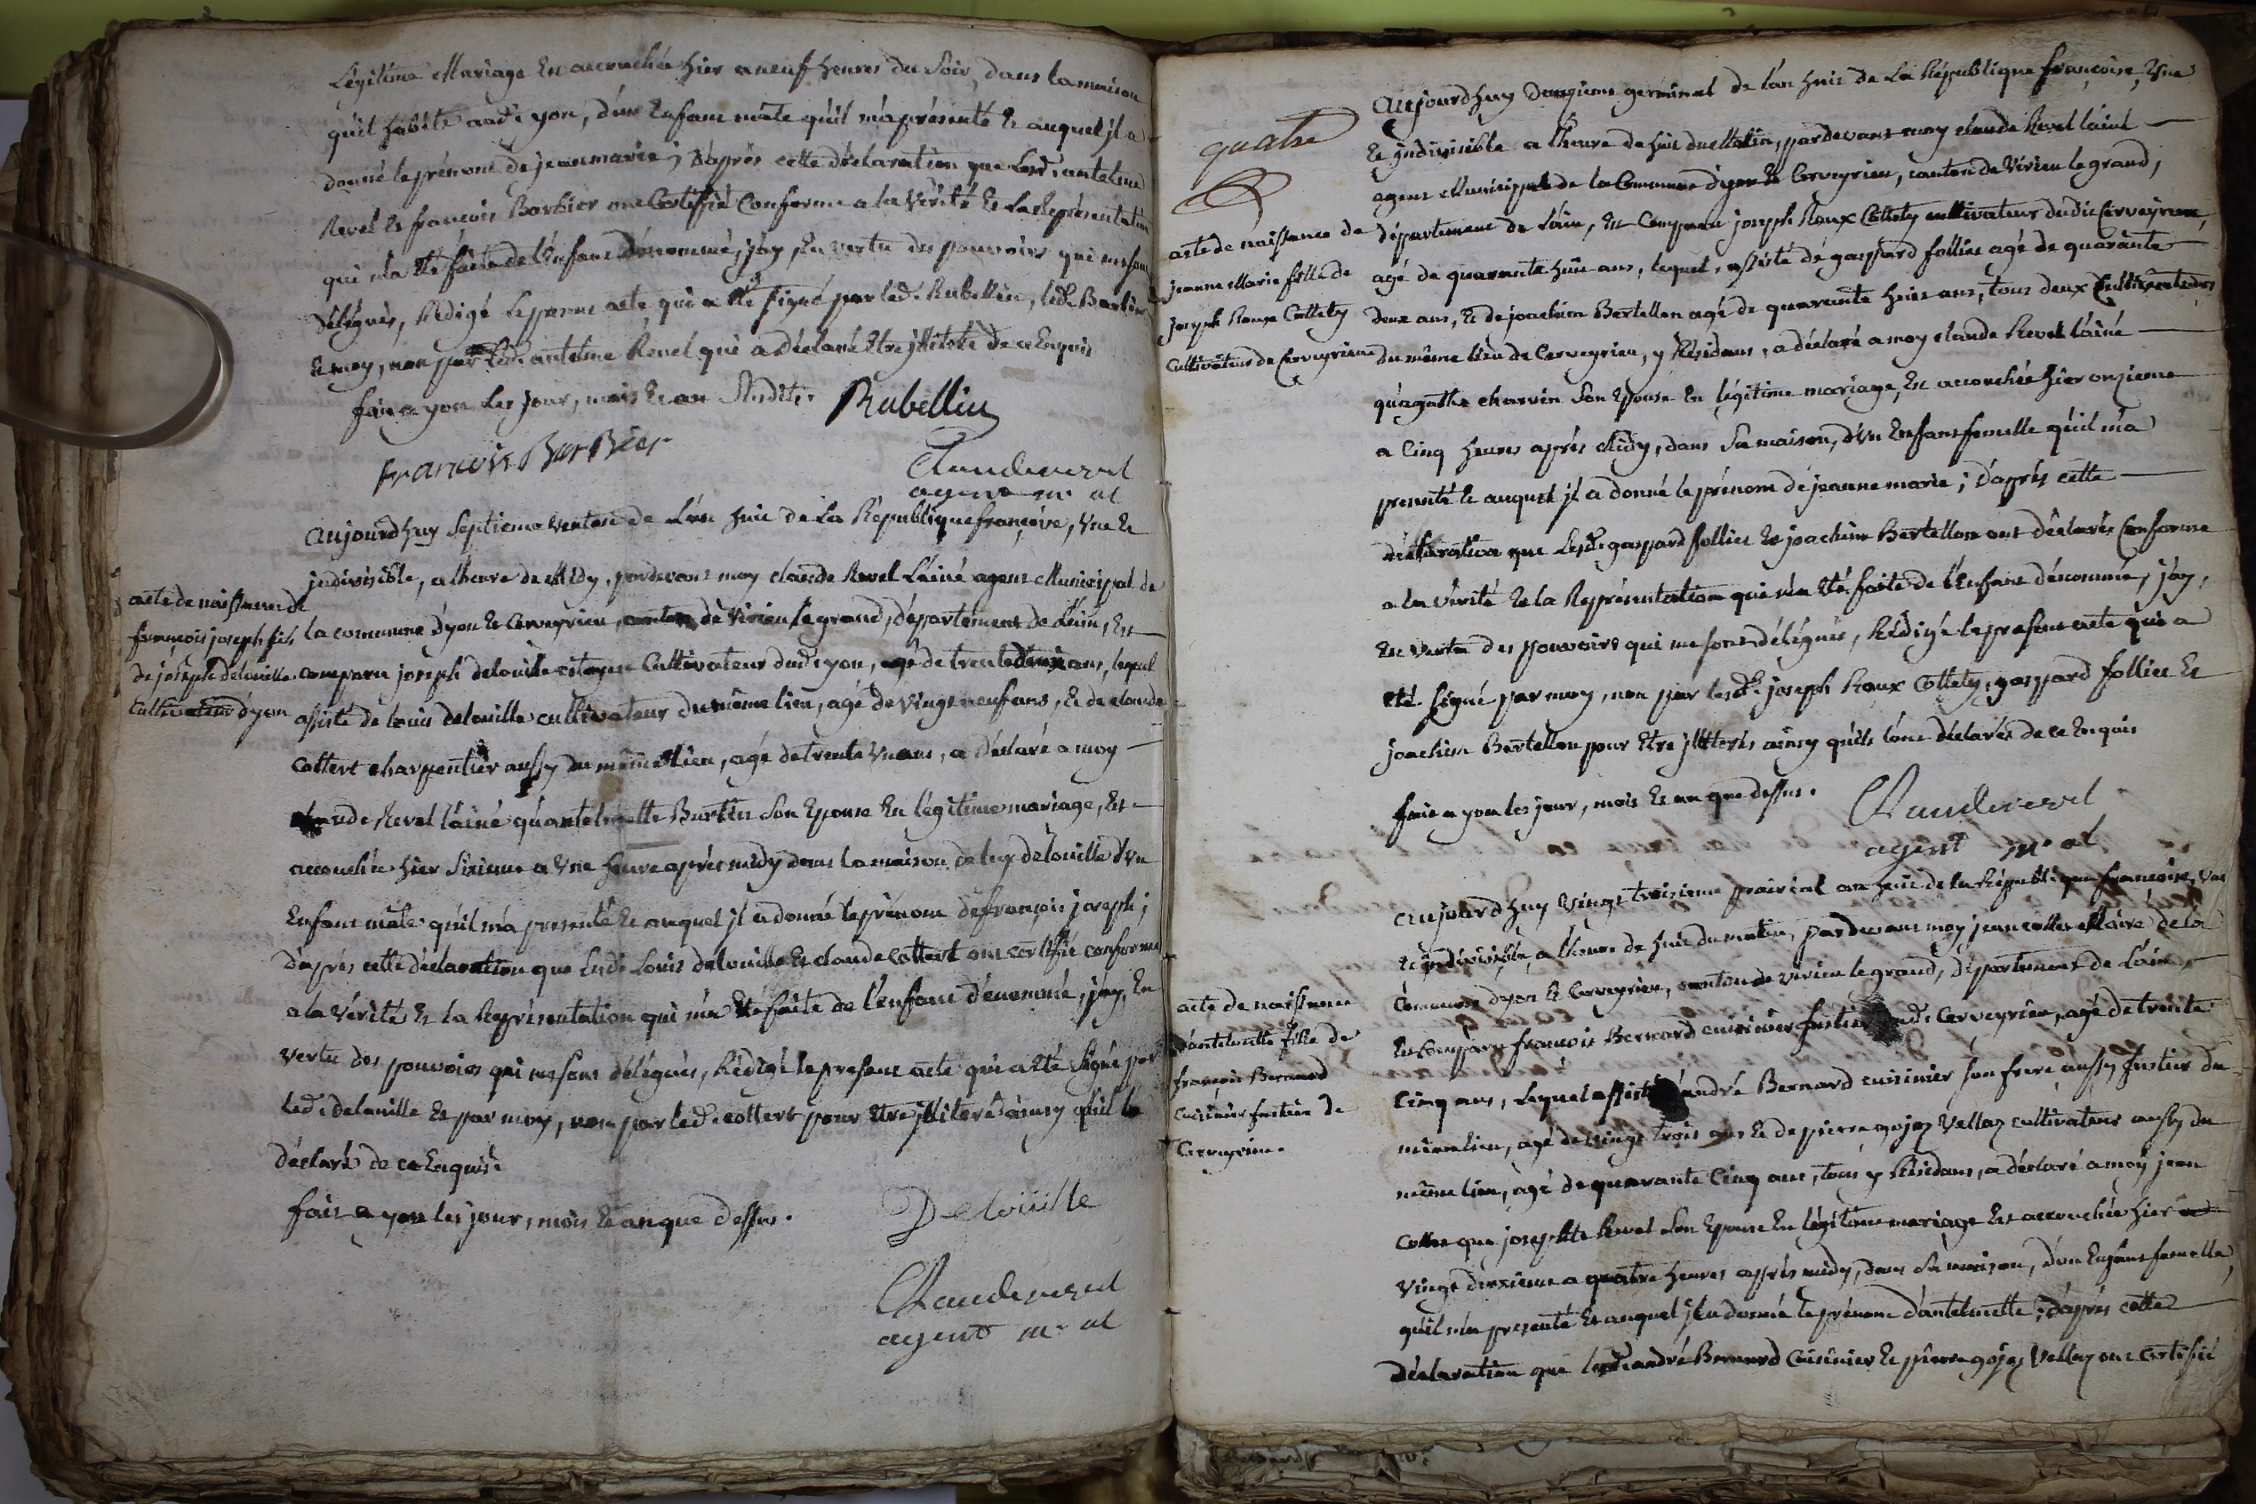 Légitime Mariage Est accouchée hier a neuf heures du Soir, dans la maison
qu'il habite aud. yon, d'un Enfant mâle qu'il m'a présenté Et auquel jl a
donné le prénom de jean marie ; D'après cette déclaration que Lesd. antelme
Revel Et françois Barbier ont Certifié Conforme a la Vérité Et La Représentation
qui m'a Eté faite de l'Enfant dénommé, j'ay, En vertu des pouvoirs qui me sont
délégués, Rédigé Le present acte, qui a Eté signé par led. Rubellin, led. Barbier
Et moy, non par Led. antelme Revel qui a déclaré Etre jllitéré de ce Enquis
fait a yon Les jour, mois Et an Susdits. Rubellin
francois BarBier
Clauderevel
agent m. al
Aujourd'huy Septieme ventose de L'an huit de La République françoise, Une Et
jndivisible, a l'heure de Midy, pardevant moy claude Revel L'ainé agent Municipal de
la commune d'yon Et Cerveyrieu, canton de Virieu le grand, département de L'ain, Est
comparu joseph delouille citoyen Cultivateur dud. yon, agé de trente deux ans, lequel
assisté de Louis delouille cultivateur du même lieu, agé de vingt neuf ans, Et de claude
Cottert charpentier aussy du même lieu, agé de trente un ans, a déclaré a moy
claude Revel l'ainé qu'antelmette Burtin Son Epouse En légitime mariage, Est
accouchée hier Sixieme a Une heure après midy dans la maison delouille d'Un
Enfant mâle qu'il m'a presenté Et auquel jl a donné le prénom de françois joseph ;
d'après cette déclaration que Lesd. Louis delouille Et claude Cottert ont certifié conforme
a la Vérité Et la Représentation qui m'a Eté faite de l'enfant dénommé, j'ay, En
vertu des pouvoirs qui me sont délégués, Rédigé le present acte qui a Eté signé par
led. delouille Et par moy, non par led. cottert pour Etre jllitéré ainsy qu'il l'a
déclaré de ce Enquis.
fait a yon les jour, mois Et an que dessus.
Delouille
Clauderevel
agent m. al
acte de naissance de
françois joseph fils
de joseph delouille
Cultivateur d'yon
quatre
Aujourd'huy douzieme germinal de l'an huit de La République françoise, Une
Et jndivisible a l'heure de huit du Matin, pardevant moy claude Revel l'ainé
agent Municipal de la Commune d'yon Et Cerveyrieu, canton de Virieu le grand,
département de L'ain, Est Comparu joseph Roux Collety cultivateur dudit Cerveyrieu,
agé de quarante huit ans, lequel, assisté de gaspard follier agé de quarante
deux ans, Et de joachim Bertellon agé de quarante huit ans, tous deux Cultivateurs
du même lieu de Cerveyrieu, y Résidans, a déclaré a moy claude Revel l'ainé
qu'agathe charvin Son Epouse En légitime mariage, Est accouchée hier onzieme
a Cinq heures après Midy, dans Sa maison, d'Un Enfant femelle qu'il m'a
presenté Et auquel jl a donné le prénom de jeanne marie ; d'après cette
déclaration que Lesd. gaspard follier Et joachim Bertellon ont déclarés Conforme
a La Vérité Et la Représentation qui m'a Eté faite de l'Enfant dénommé, j'ay,
En vertu des pouvoirs qui me sont délégués, Rédigé le present acte qui a
Eté signé par moy, non par lesd. joseph Roux Collety, gaspard follier Et
joachim Bertellon pour Etre jllitérés ainsy qu'ils l'ont déclarés de ce Enquis
fait a yon les jour, mois Et an que dessus.
Clauderevel
agent m. al
acte de naissance de
jeanne Marie fille de
joseph Roux Collety
Cultivateur de Cerveyrieu
Aujourd'huy Vingt troisieme prairial an huit de la République françoise, Une
Et jndivisible, a l'heure de huit du matin, pardevant moy jean collet Maire de la
Commune d'yon Et Cerveyrieu, canton de virieu le grand, département de L'ain,
Est Comparu francois Bernard cuisinier fustier dud. Cerveyrieu, agé de trente
Cinq ans, Lequel assisté d'andré Bernard cuisinier son frere aussy fustier du
même lieu, agé de vingt trois ans Et de pierre gojoz Vellaz cultivateur aussy du
même lieu, agé de quarante Cinq ans, tous y Résidans, a déclaré a moy jean
Collet que josephte Revel Son Epouse En légitime mariage Est accouchée hier
Vingt deuxieme a quatre heures après midy, dans Sa maison, d'un Enfant femelle,
qu'il m'a presenté Et auquel jl a donné le prénom d'antelmette ; d'après cette
déclaration que lesd. andré Bernard Cuisinier Et pierre gojoz Vellaz ont Certifié
acte de naissance
d'antelmette fille de
françois Bernard
Cuisinier fustier de
Cerveyrieu.